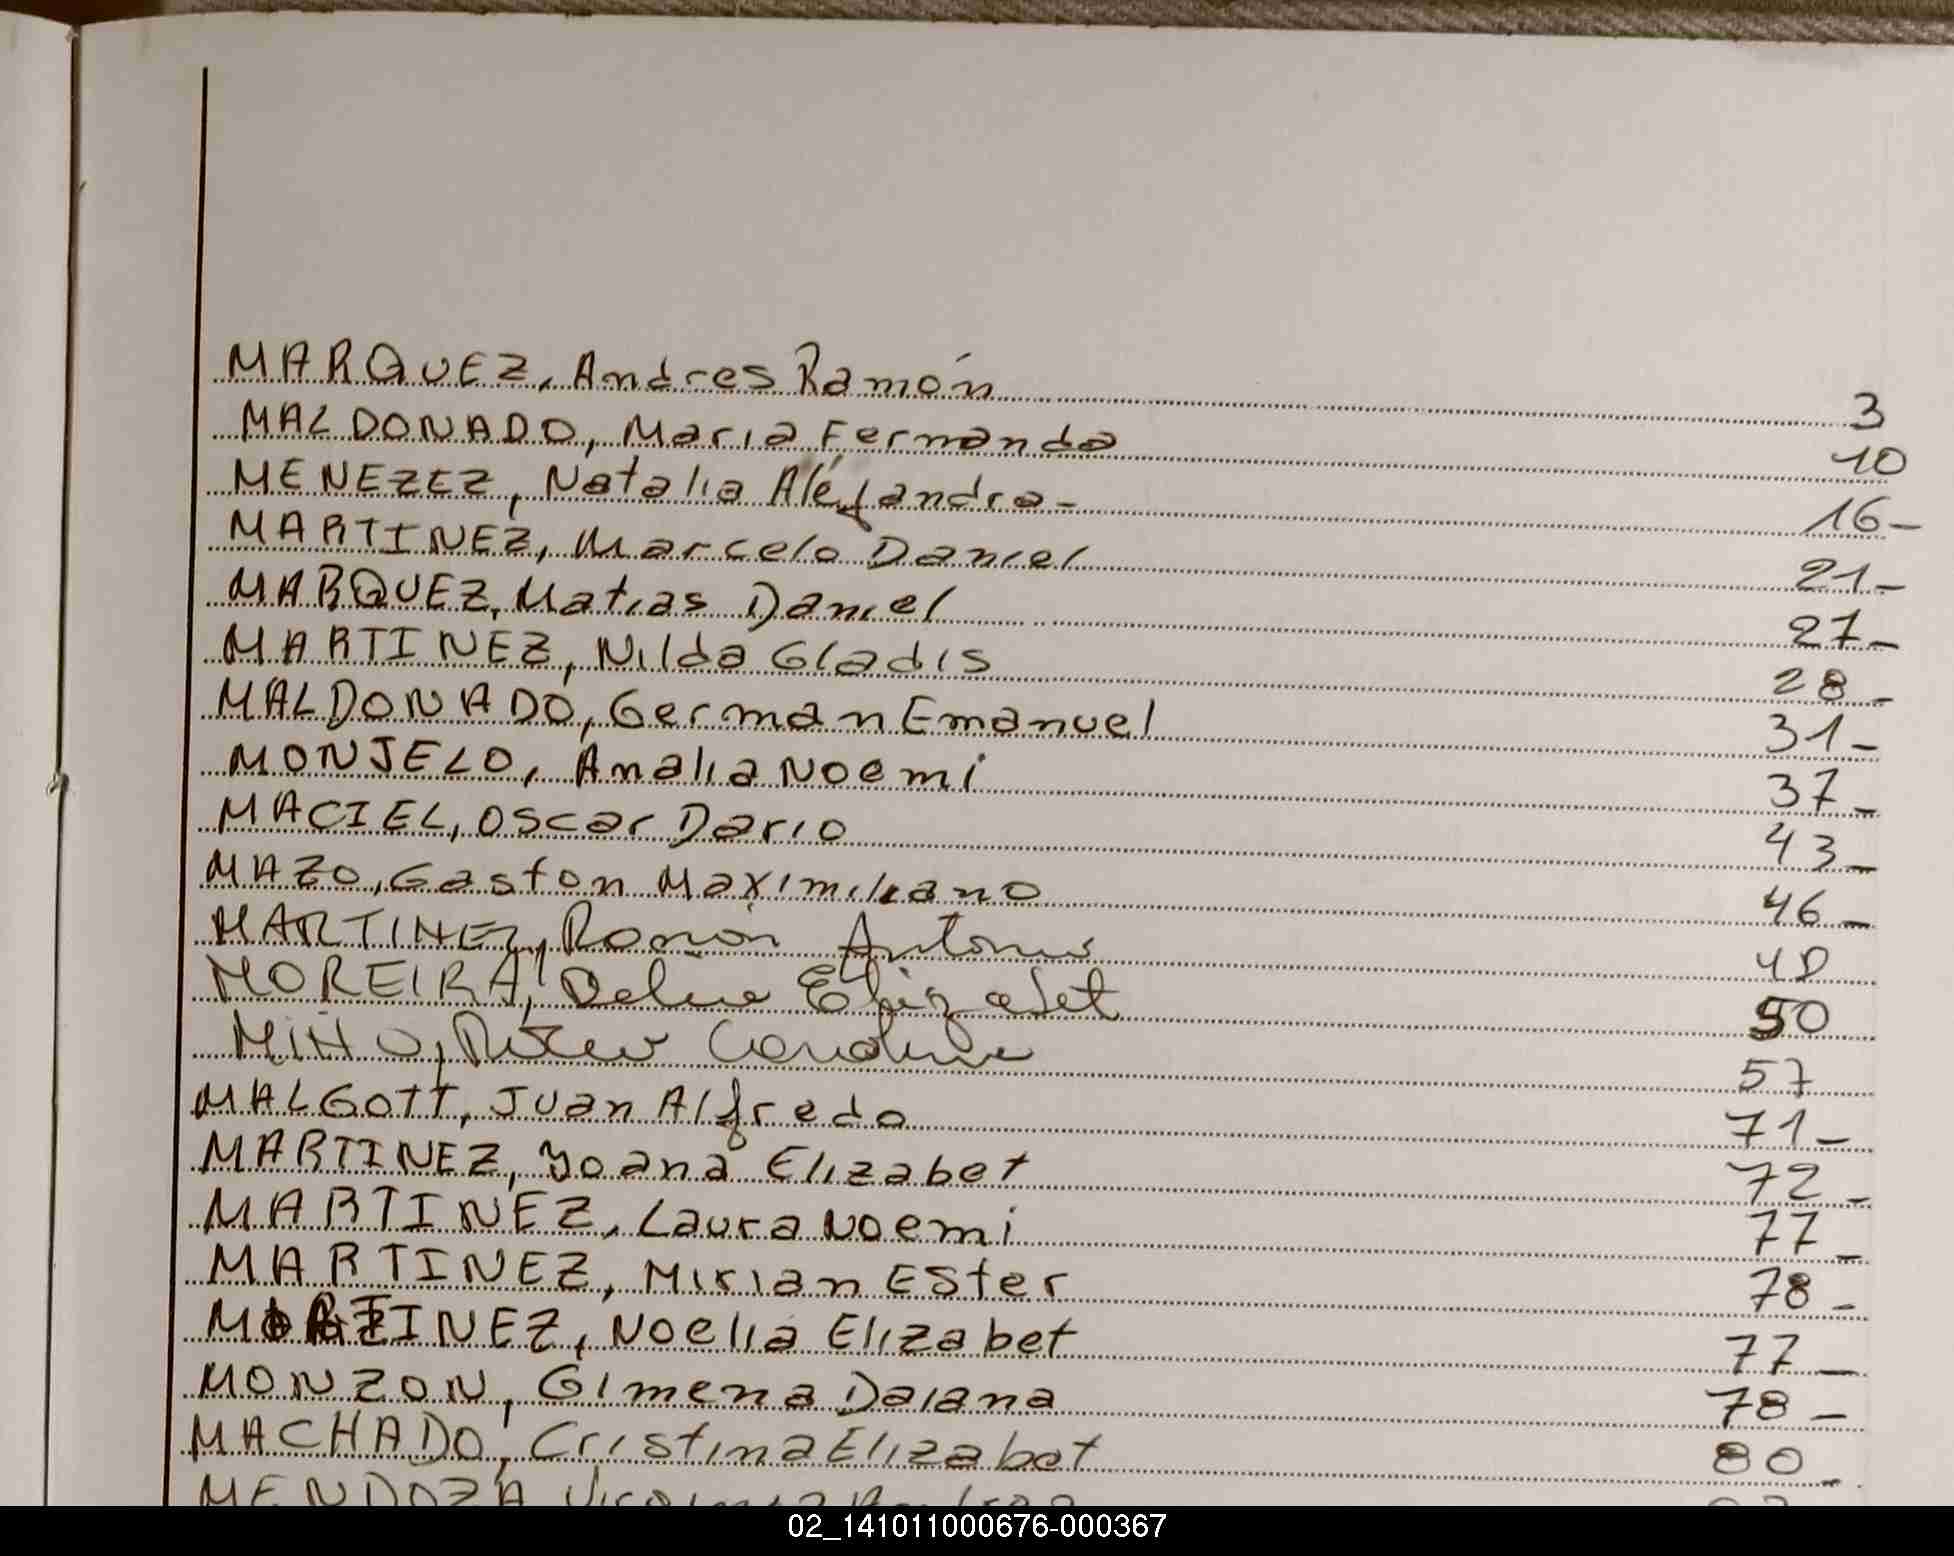 MARQUEZ, Andres Ramón 3
MALDONADO, Maria Fernanda 10
MENEZEZ, Natalia Aléjandra- 16-
MARTINEZ, Marcelo Daniel 21-
MARQUEZ, Matias Daniel 27-
MARTINEZ, Nilda Gladis 28-
MALDONADO, German Emanuel 31-
MONJELO, Amalia Noemi 37-
MACIEL, Oscar Dario 43-
MAZO, Gaston Maximiliano 46-
MARTINEZ, Ramón Antonio 48
MOREIRA, Elizabet 50
MIÑO, Carolina 57
MALGOTT, Juan Alfredo 71-
MARTINEZ, Yoana Elizabet 72-
MARTINEZ, Laura Noemi 77-
MARTINEZ, Mirian Ester 78-
MARTINEZ, Noelia Elizabet 77-
MONZON, Gimena Daiana 78-
MACHADO, Cristina Elizabet 80-
MENDOZA
02_141011000676-000367